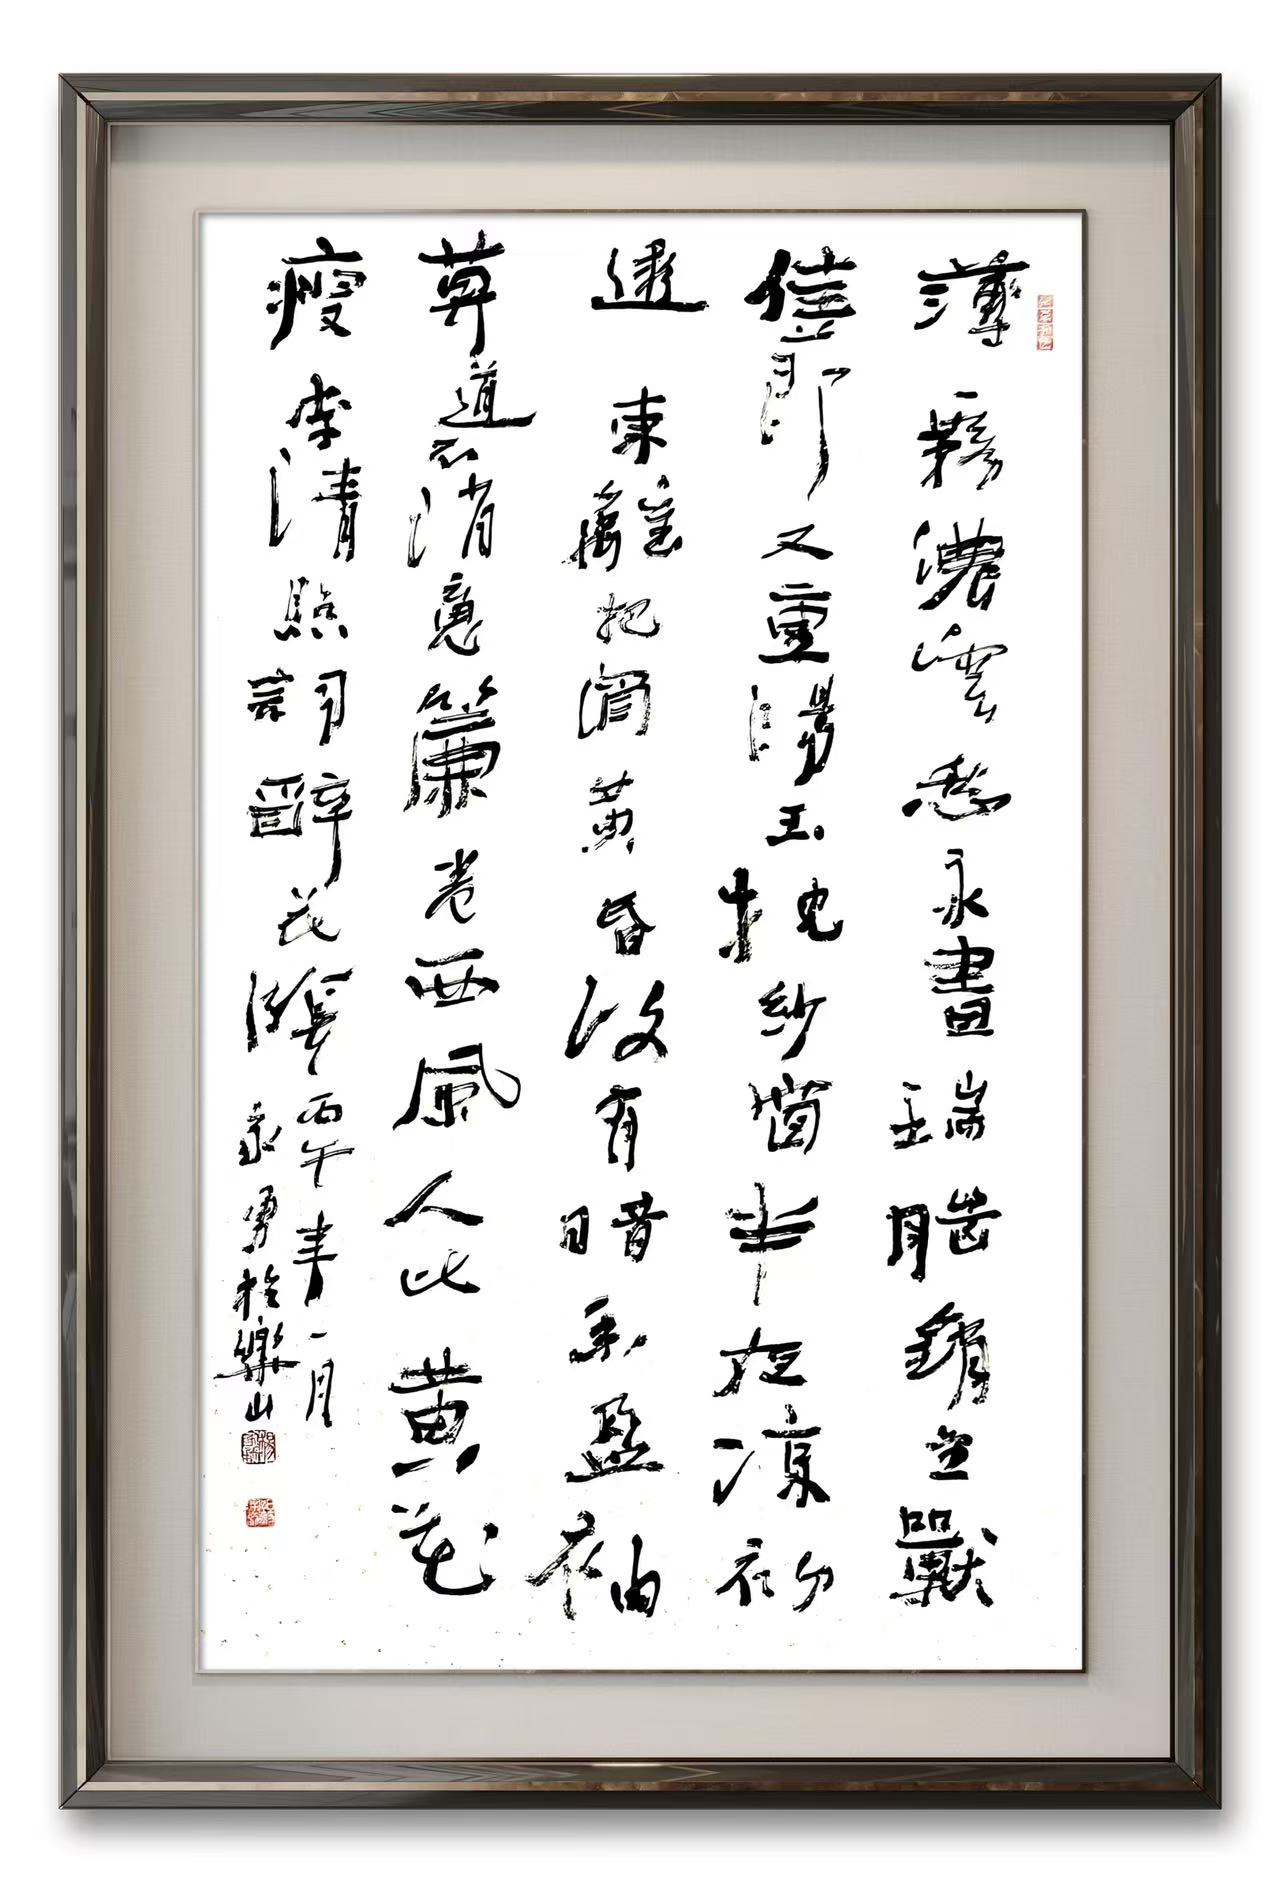 薄霧濃雲愁永晝瑞腦銷金獸
佳節又重陽玉枕紗窗半夜凉初
透東籬把酒黄昏後有暗香盈袖
莫道不消魂簾卷西風人比黄花
瘦李清照詞醉花陰丙午年一月
永勇於樂山